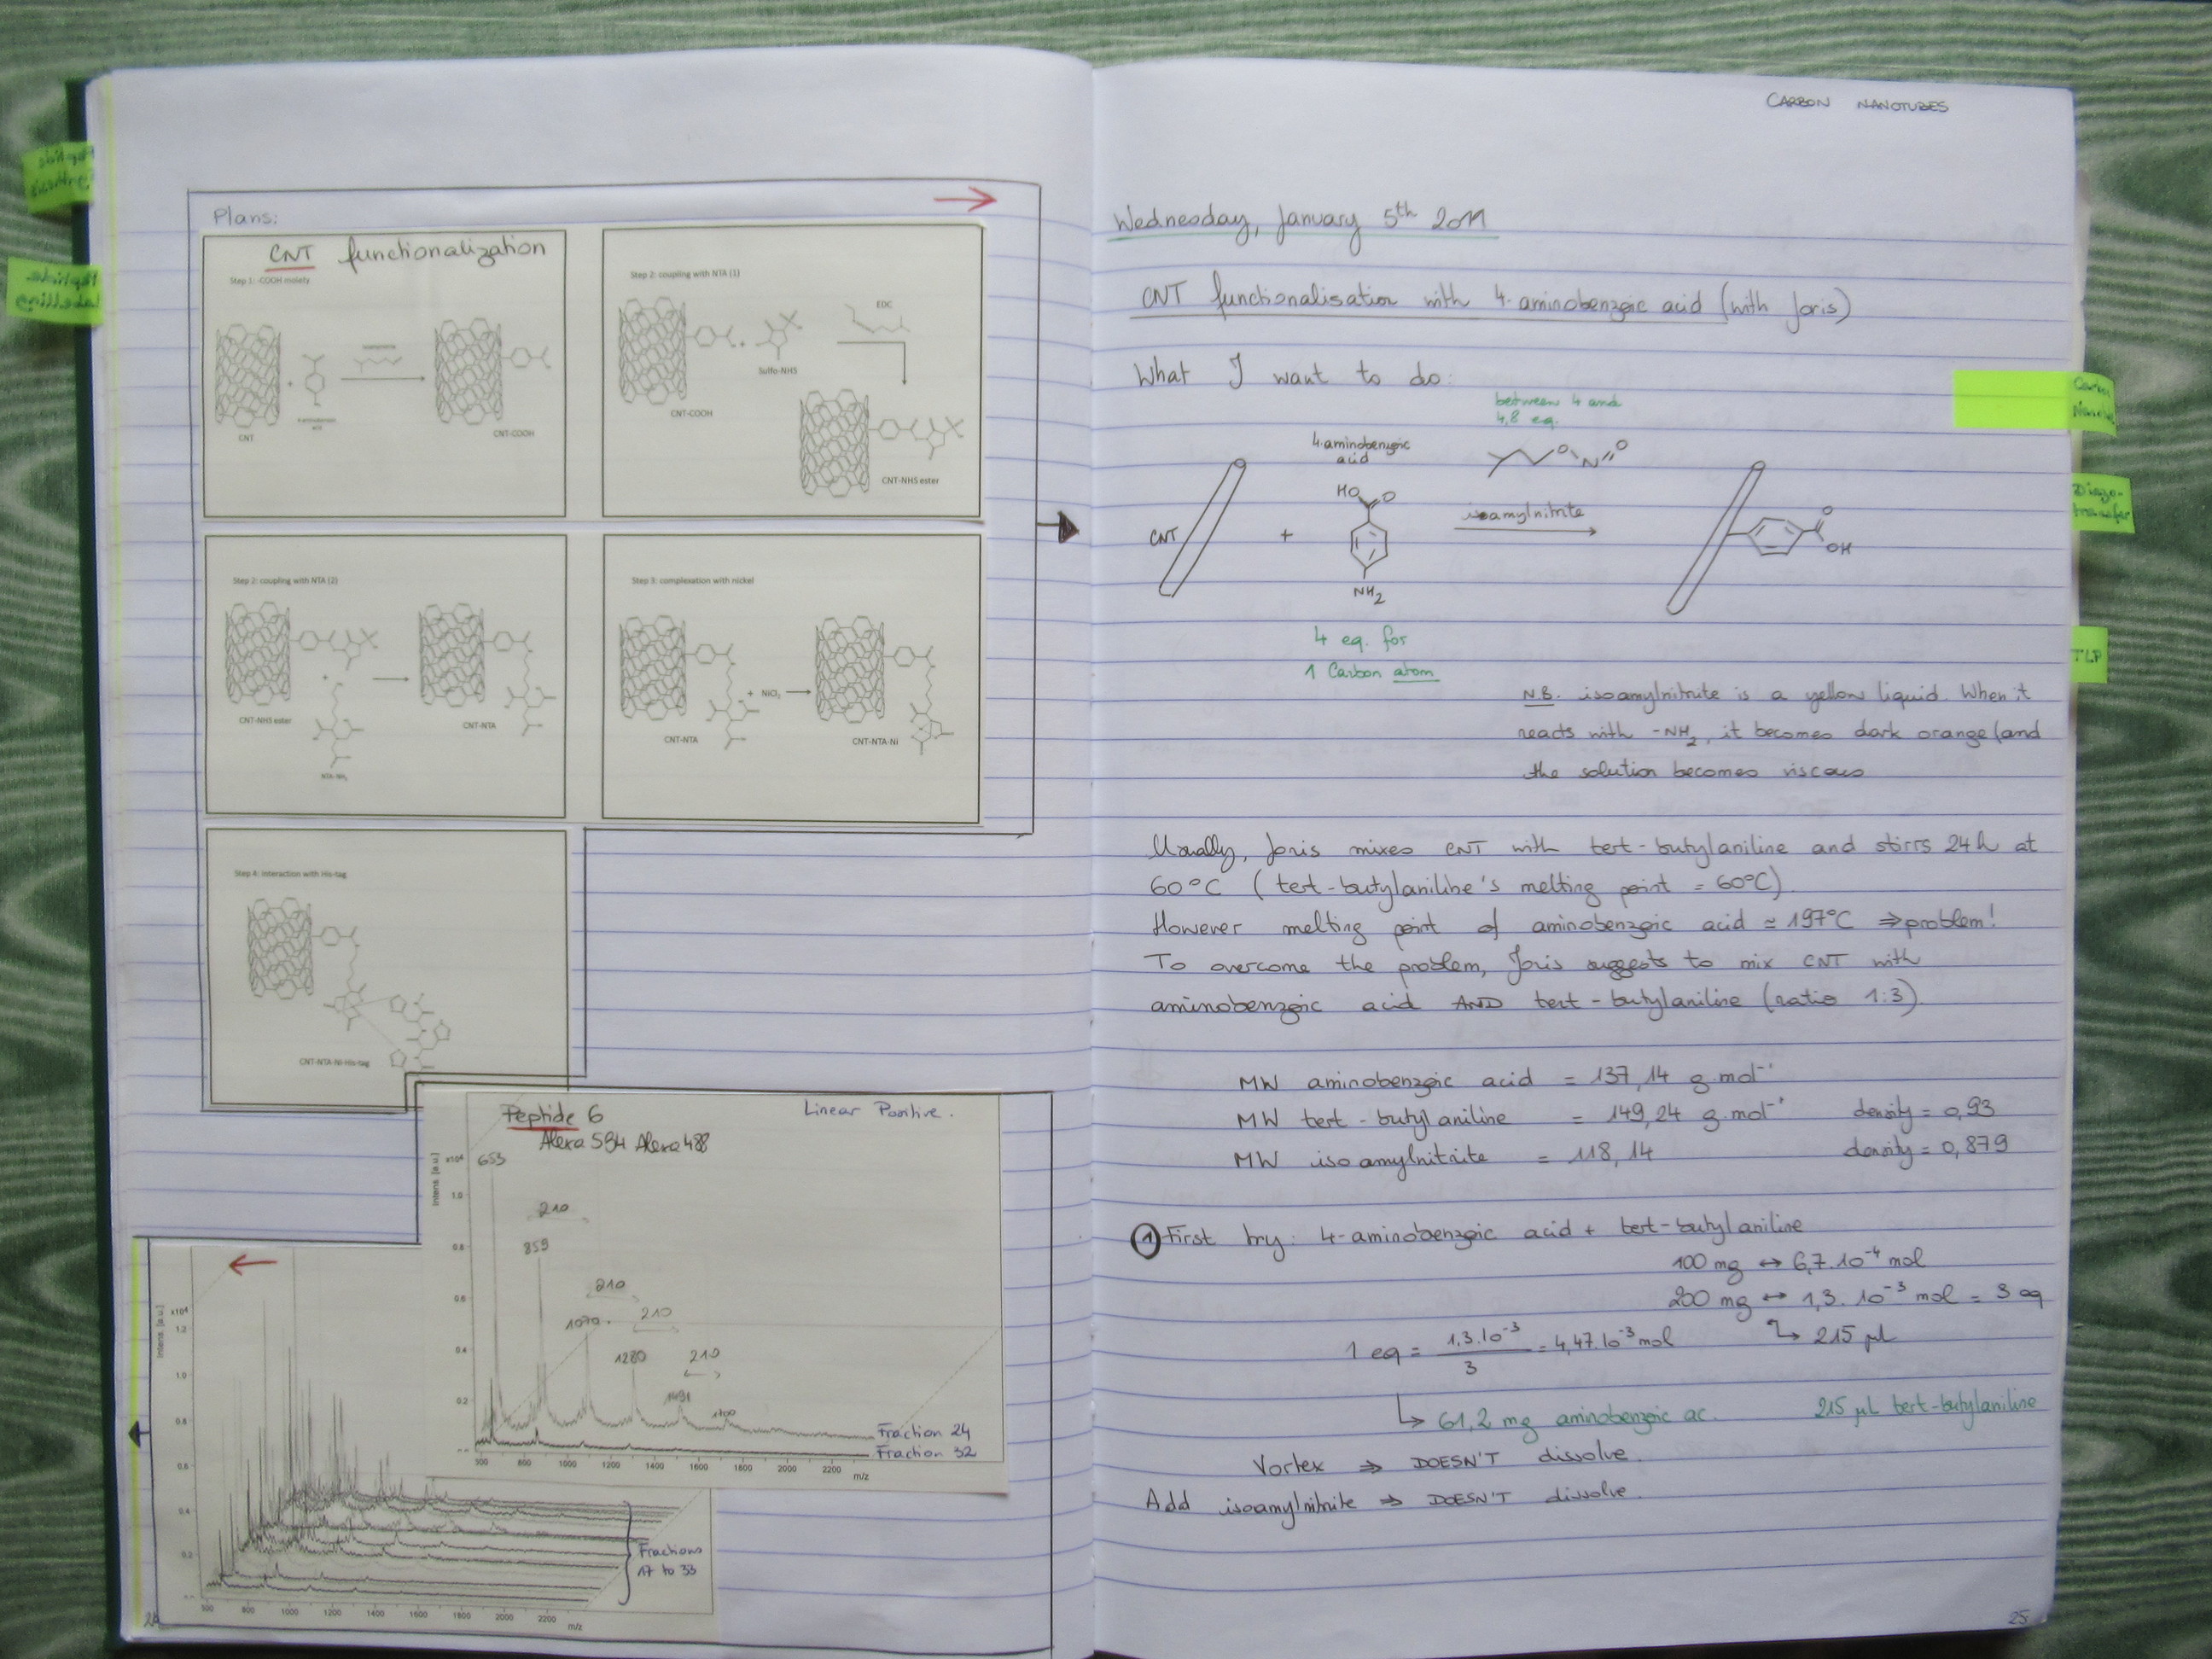 Plans:
CNT functionalization
Step 1: -COOH moiety
CNT
+
CNT-COOH
Step 2: coupling with NTA (1)
EDC
+
Sulfo-NHS
CNT-COOH
CNT-NHS ester
Step 2: coupling with NTA (2)
+
CNT-NHS ester
CNT-NTA
NTA-NH₂
Step 3: complexation with nickel
+ NiCl₂
CNT-NTA
CNT-NTA-Ni
Step 4: interaction with His-tag
CNT-NTA-Ni-His-tag
Peptide 6
Linear Positive.
Alexa 594 Alexa 488
Intens. [a.u.]
x10⁴
653
1.0
210
859
0.8
210
0.6
1070
210
0.4
1280
210
1491
0.2
1700
Fraction 24
Fraction 32
800 1000 1200 1400 1600 1800 2000 2200
m/z
Intens. [a.u.]
x10⁴
1.2
1.0
0.8
0.6
0.4
0.2
Fractions
17 to 33
800 1000 1200 1400 1600 1800 2000 2200
m/z
CARBON NANOTUBES
Wednesday, January 5th 2011
CNT functionalisation with 4-aminobenzoic acid (with Joris)
What I want to do:
between 4 and
4,8 eq.
4-aminobenzoic
acid
O N O
HO O
isoamylnitrite
CNT
+
O
OH
NH₂
4 eq. for
1 Carbon atom
N.B. isoamylnitrite is a yellow liquid. When it
reacts with -NH₂, it becomes dark orange (and
the solution becomes viscous
Usually, Joris mixes CNT with tert-butylaniline and stirrs 24h at
60°C (tert-butylaniline's melting point = 60°C).
However melting point of aminobenzoic acid = 197°C ⇒ problem!
To overcome the problem, Joris suggests to mix CNT with
aminobenzoic acid AND tert-butylaniline (ratio 1:3).
MW aminobenzoic acid = 137,14 g.mol⁻¹
MW tert-butylaniline = 149,24 g.mol⁻¹ density = 0,93
MW isoamylnitrite = 118,14 density = 0,879
① First try: 4-aminobenzoic acid + tert-butylaniline
100 mg ↔ 6,7.10⁻⁴ mol
200 mg ↔ 1,3.10⁻³ mol = 3 eq
↳ 215 µl
1 eq = 1,3.10⁻³ / 3 = 4,47.10⁻³ mol
↳ 61,2 mg aminobenzoic ac. 215 µL tert-butylaniline
Vortex ⇒ DOESN'T dissolve.
Add isoamylnitrite ⇒ DOESN'T dissolve.
25
Diazo-
transfer
TLP